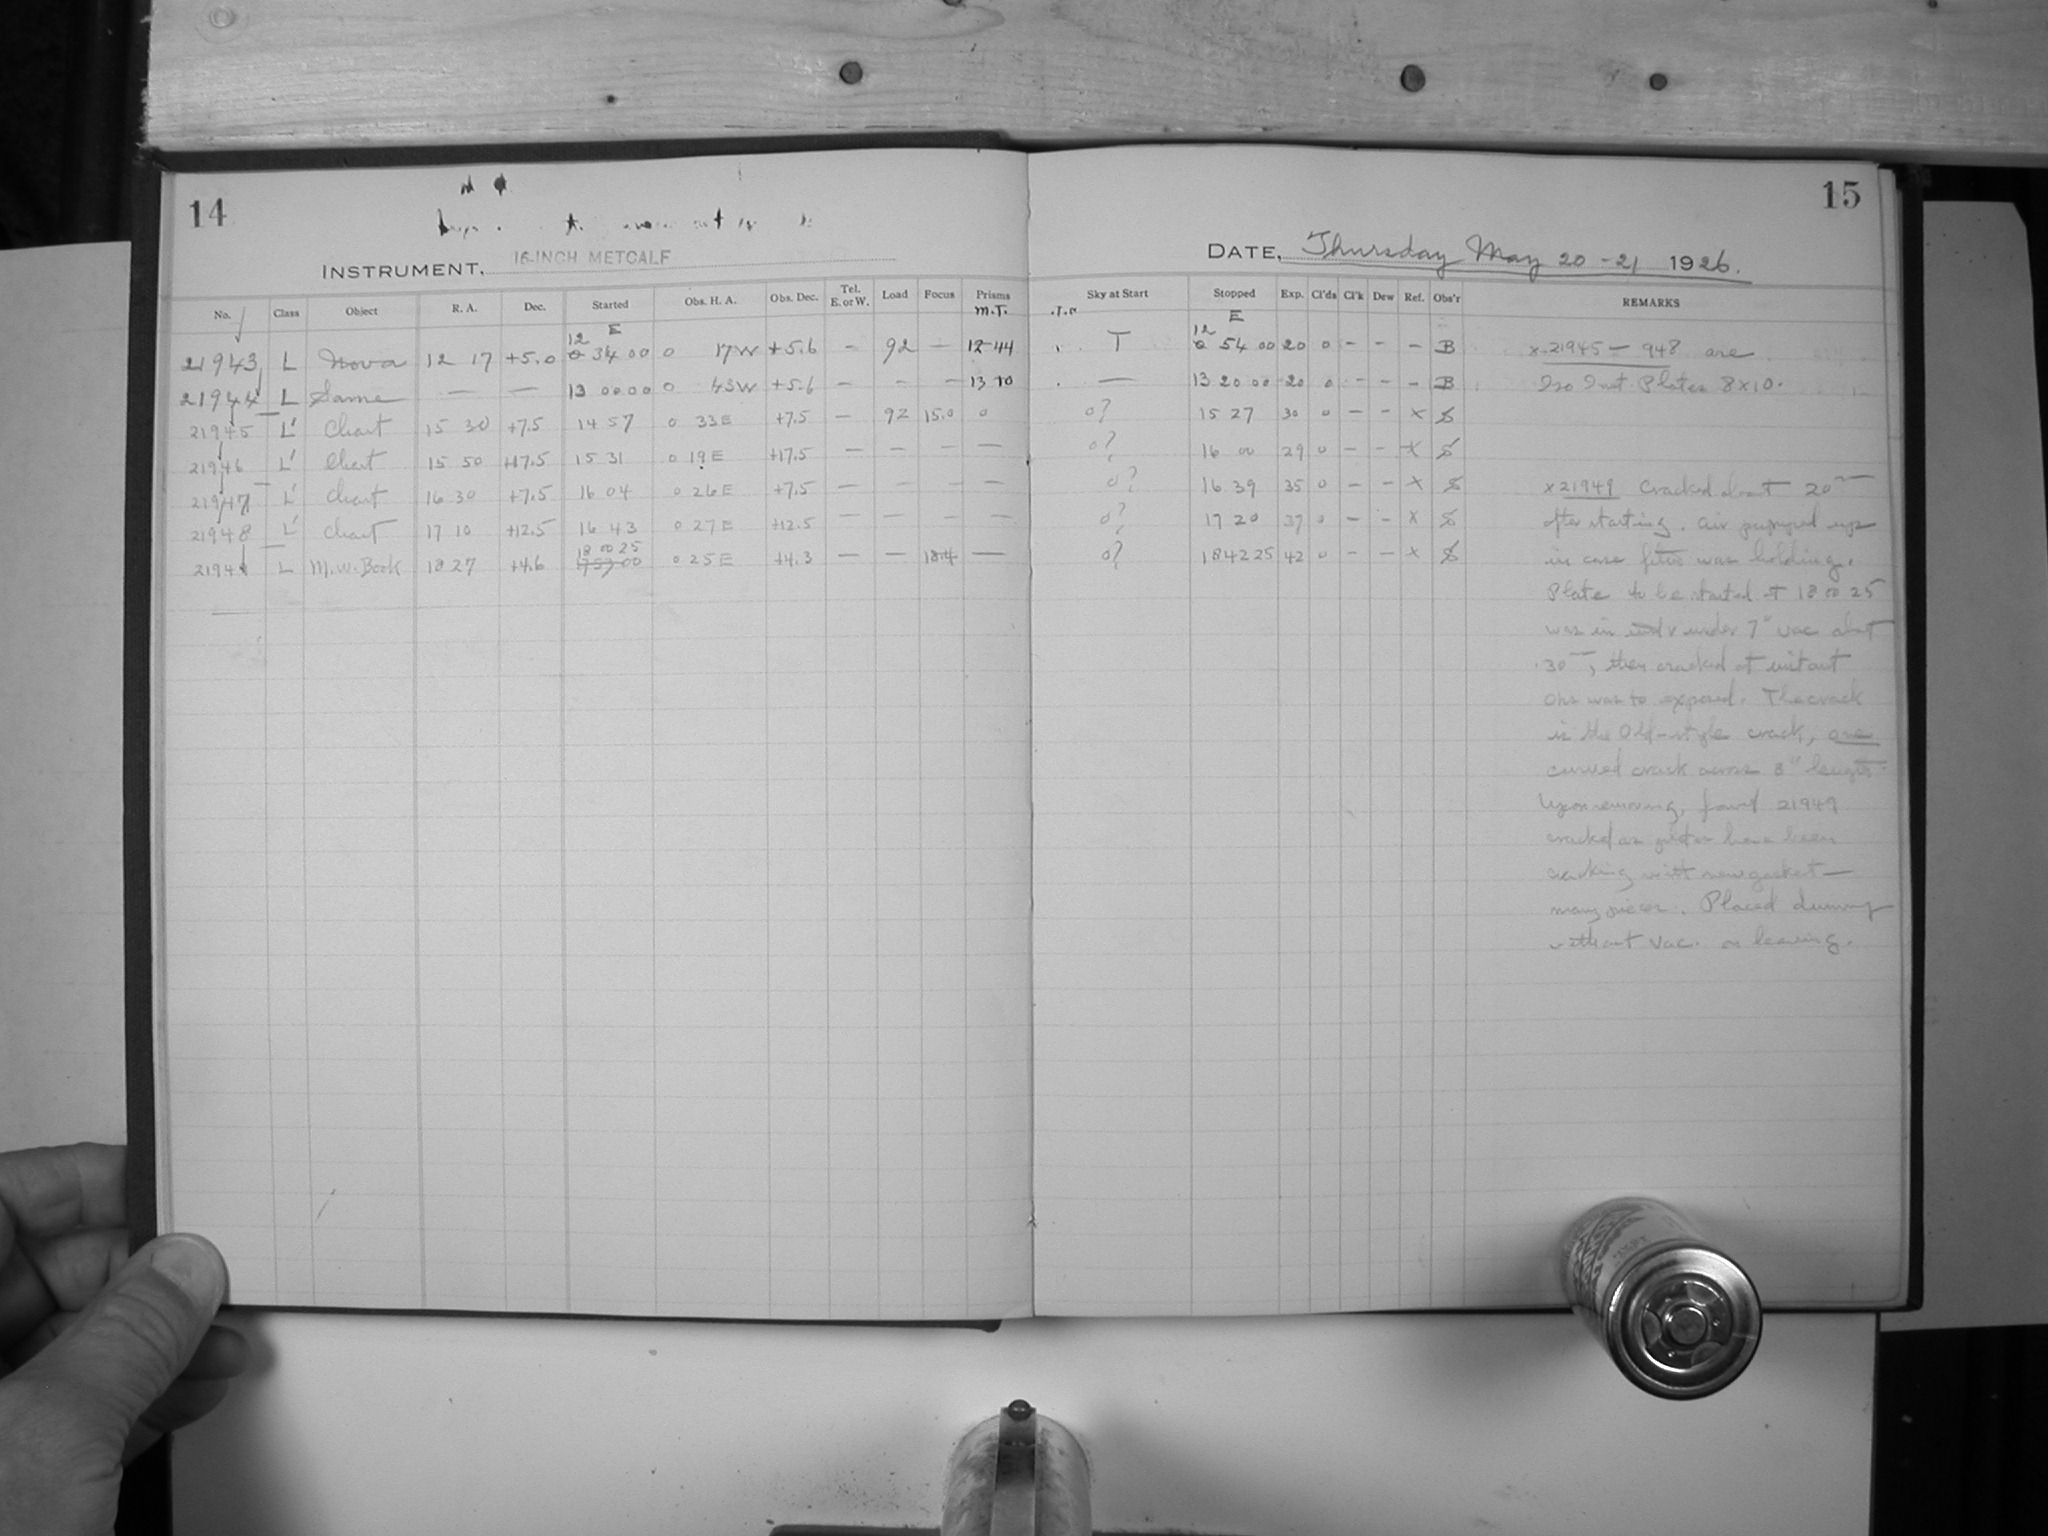 14
INSTRUMENT, 16-INCH METCALF
No. Class Object R. A. Dec. Started Obs. H. A. Obs. Dec. Tel. E. or W. Load Focus Prisms M.T.
21943 L Nova 12 17 +5.0 12 34 00 E 0 17W +5.6 – 92 – 12 44
21944 L Same — — 13 00 00 0 43W +5.6 – – – 13 10
21945 L' Chart 15 30 +7.5 14 57 0 33E +7.5 — 92 15.0 0
21946 L' Chart 15 50 +17.5 15 31 0 19E +17.5 — — — —
21947 L' Chart 16 30 +7.5 16 04 0 26E +7.5 — — — —
21948 L' Chart 17 10 +12.5 16 43 0 27E +12.5 — — — —
21949 L M.W. Book 18 27 +4.6 18 00 25 0 25E +4.3 — — 18.4 —
15
DATE, Thursday May 20-21 1926.
Sky at Start Stopped Exp. Cl'ds Cl'k Dew Ref. Obs'r REMARKS
T 12 54 00 E 20 0 – – – B x 21945 – 948 are
— 13 20 00 20 0 – – – B Iso Inst. Plates 8x10.
0? 15 27 30 0 – – x S
0? 16 00 29 0 – – x S
0? 16 39 35 0 – – x S x 21949 Cracked about 20m
0? 17 20 37 0 – – x S after starting. Air pumped up
0? 18 42 25 42 0 – – x S in case was holding.
Plate to be started at 18 00 25
was in under 7" vac about
30 , then cracked at instant
one was to exposed. The crack
is the Old-style crack, one
curved crack across 8" length.
Upon removing, found 21949
cracked as plates have been
cracking with new gasket—
many pieces. Placed dummy
without vac. on leaving.